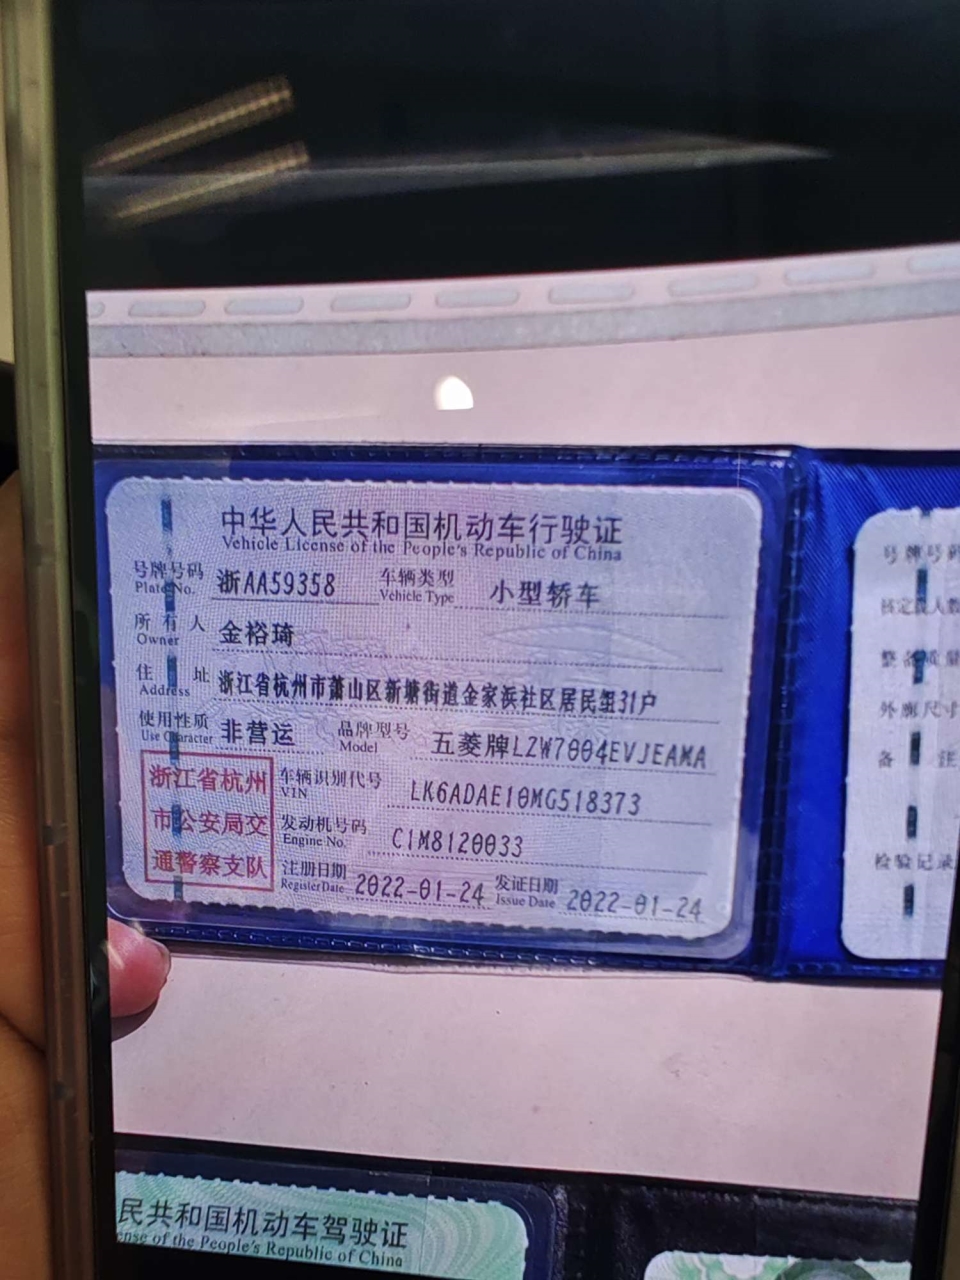 中华人民共和国机动车行驶证
Vehicle License of the People's Republic of China
号牌号码 浙AA59358 车辆类型 小型轿车
Plate No. Vehicle Type
所有人 金裕琦
Owner
住址 浙江省杭州市萧山区新塘街道金家浜社区居民组31户
Address
使用性质 非营运 品牌型号 五菱牌LZW7004EVJEAMA
Use Character Model
浙江省杭州
市公安局交
通警察支队
车辆识别代号 LK6ADAE10MG518373
VIN
发动机号码 C1M8120033
Engine No.
注册日期 2022-01-24 发证日期 2022-01-24
Register Date Issue Date
号牌号码
核定载人数
整备质量
外廓尺寸
备 注
检验记录
民共和国机动车驾驶证
ense of the People's Republic of China